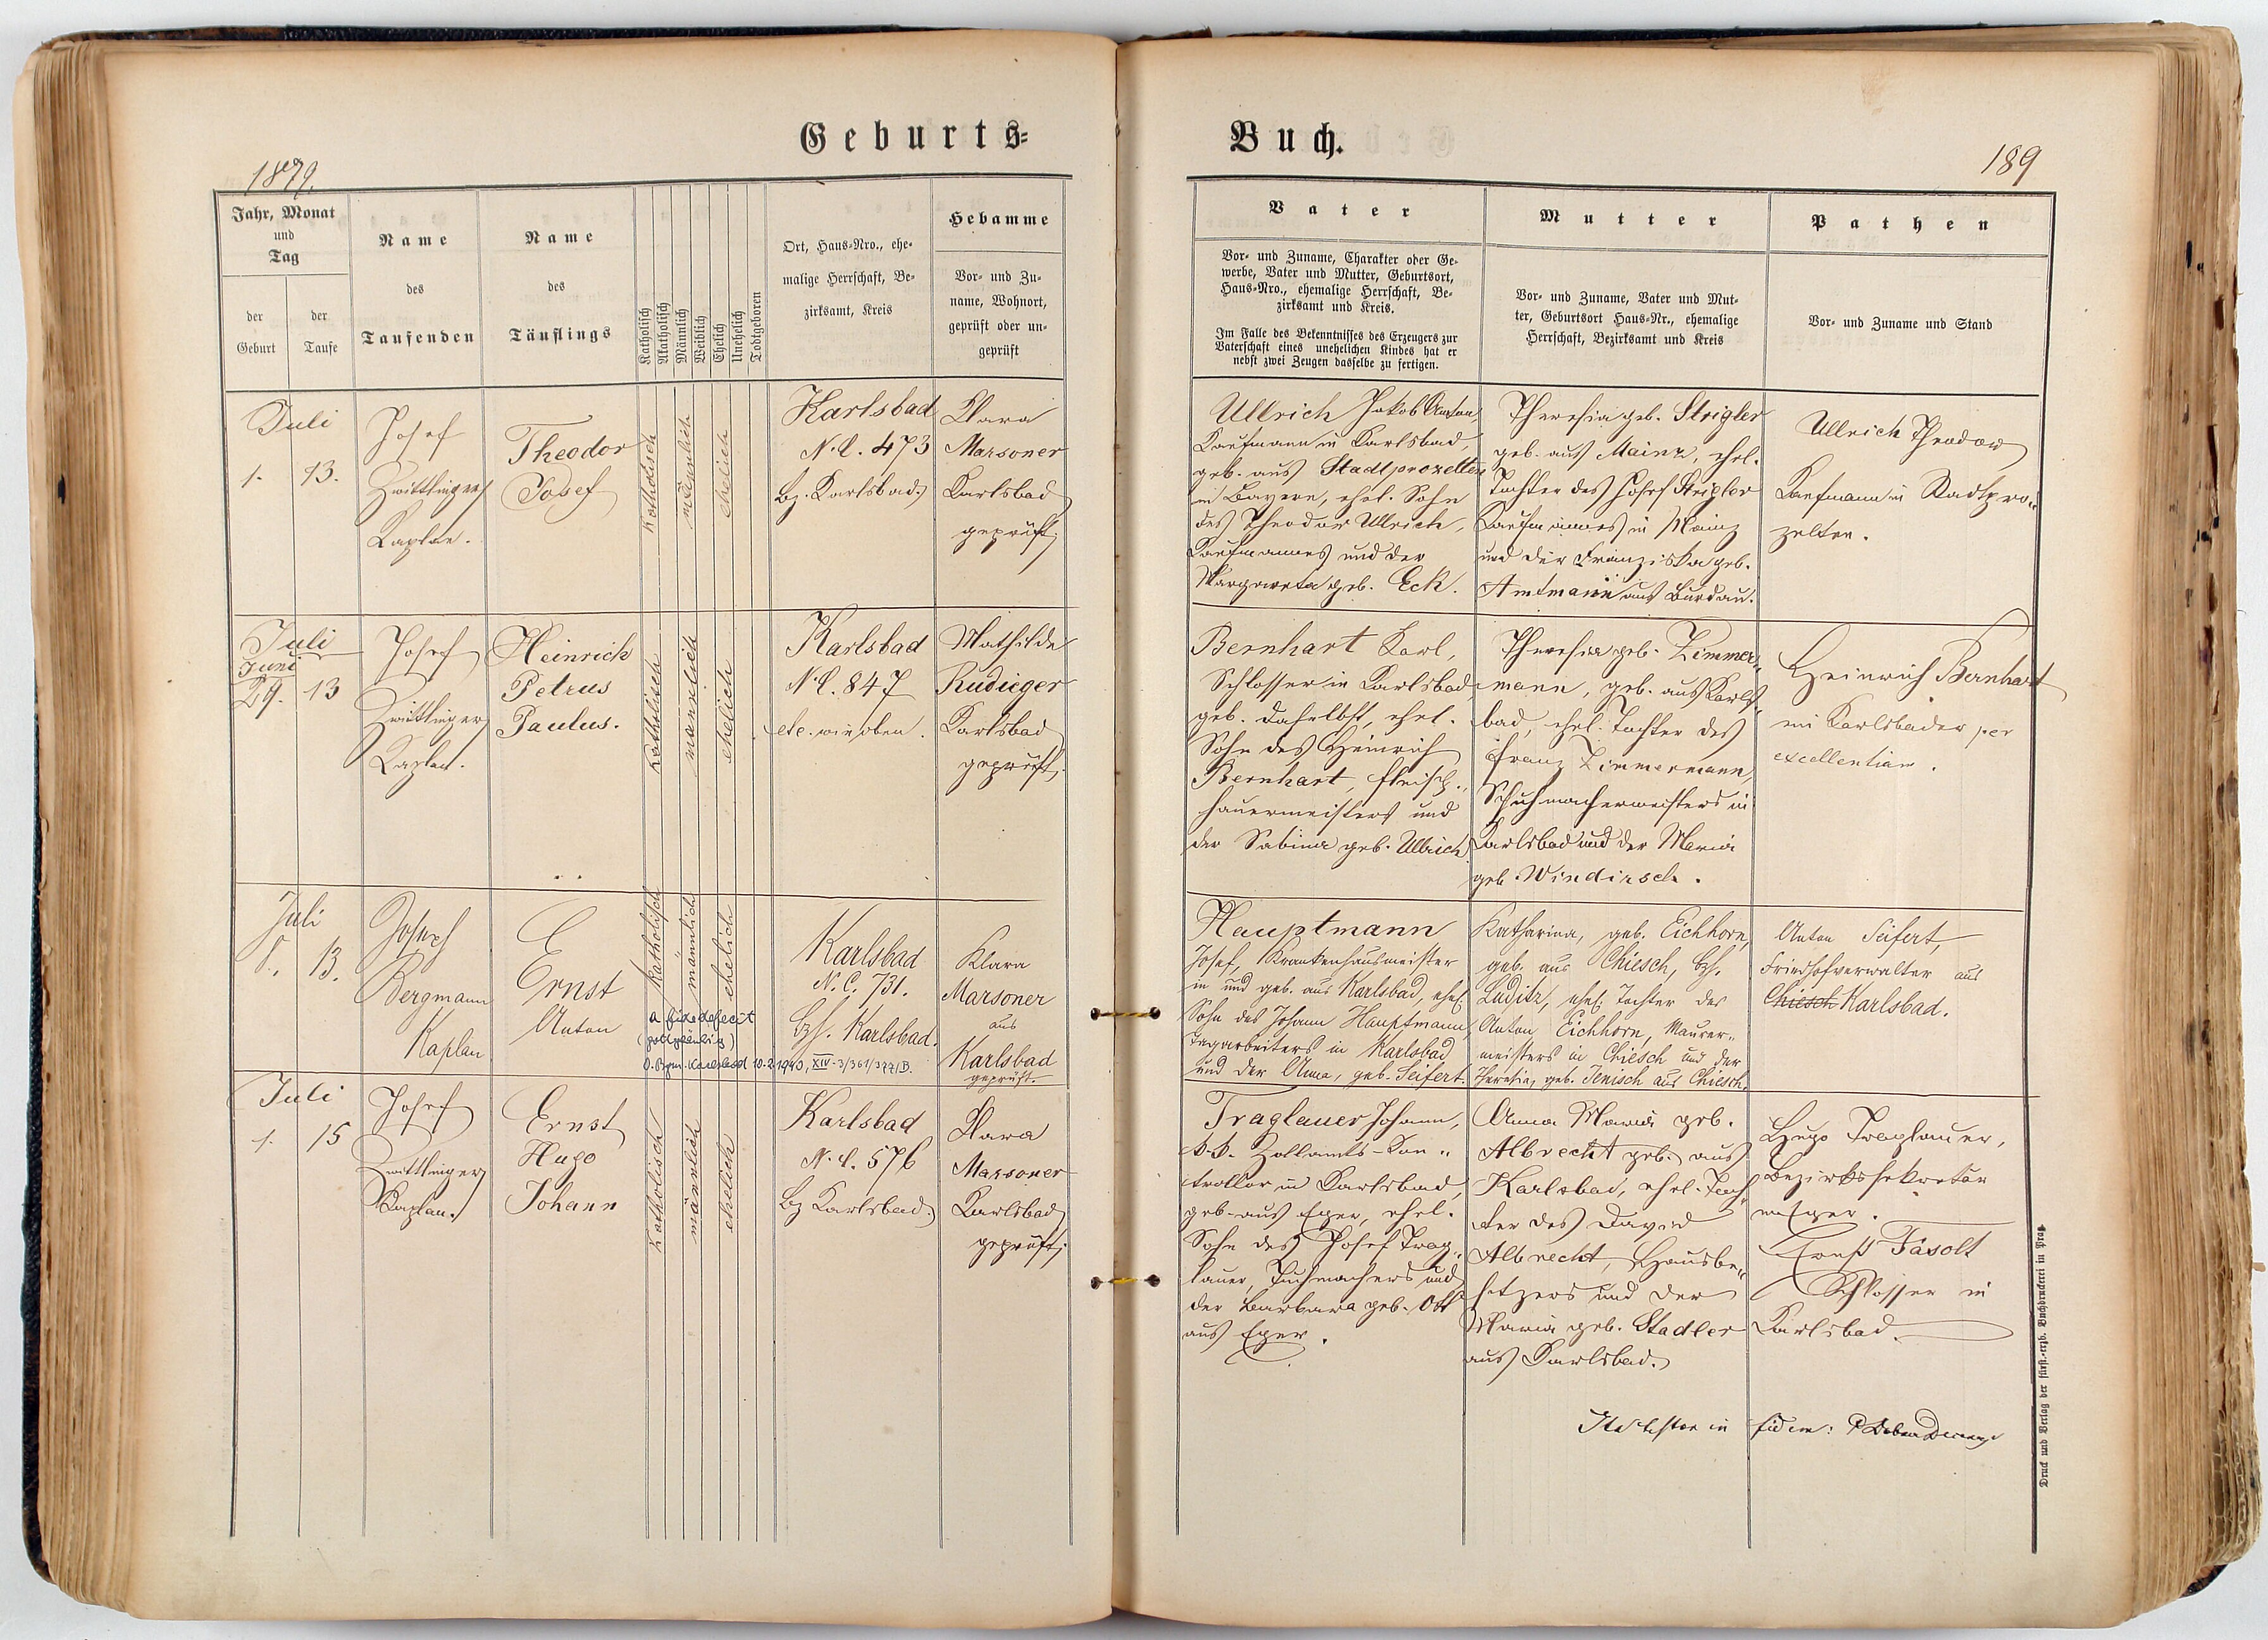 Geburts-
Buch.
1879.
189
Jahr, Monat
und
Tag
der
Geburt
der
Taufe
Name
des
Taufenden
Name
des
Täuflings
Katholisch
Akatholisch
Männlich
Weiblich
Ehelich
Unehelich
Todtgeboren
Ort, Haus-Nro., ehe-
malige Herrschaft, Be-
zirksamt, Kreis
Hebamme
Vor- und Zu-
name, Wohnort,
geprüft oder un-
geprüft
Vater
Vor- und Zuname, Charakter oder Ge-
werbe, Vater und Mutter, Geburtsort,
Haus-Nro., ehemalige Herrschaft, Be-
zirksamt und Kreis.
Im Falle des Bekenntnisses des Erzeugers zur
Vaterschaft eines unehelichen Kindes hat er
nebst zwei Zeugen dasselbe zu fertigen.
Mutter
Vor- und Zuname, Vater und Mut-
ter, Geburtsort Haus-Nr., ehemalige
Herrschaft, Bezirksamt und Kreis
Pathen
Vor- und Zuname und Stand
Juli
1. 13.
Josef
Zwittlinger
Kaplan.
Theodor
Josef
katholisch
männlich
ehelich
Karlsbad
N.C. 473
bz. Karlsbad.
Klara
Marsoner
Karlsbad
geprüft.
Ullrich Jakob Anton,
Kaufmann in Karlsbad,
geb. aus Stadtprozelten
in Bayern, ehel. Sohn
des Theodor Ullrich,
Kaufmannes und der
Margareta geb. Eck.
Theresia geb. Strigler
geb. aus Mainz, ehel.
Tochter des Josef Strigler
Kaufmannes in Mainz
und der Franziska geb.
Amtmann aus
Ullrich Theodor
Kaufmann in Stadtpro-
zelten.
Juli
Juni
29. 13
Josef
Zwittlinger
Kaplan.
Heinrich
Petrus
Paulus.
katholisch
männlich
ehelich
Karlsbad
N.C. 847
etc. wie oben.
Mathilde
Rudieger
Karlsbad
geprüft.
Bernhart Karl,
Schlosser in Karlsbad,
geb. daselbst, ehel.
Sohn des Heinrich
Bernhart, Fleisch-
hauermeisters und
der Sabina geb. Ullrich.
Theresia geb. Zimmer-
mann, geb. aus Karls-
bad, ehel. Tochter des
Franz Zimmermann,
Schuhmachermeisters in
Karlsbad und der Maria
geb. Windirsch.
Heinrich Bernhart
ein Karlsbader per
excellentiam.
Juli
8. 13.
Josef
Bergmann
Kaplan
Ernst
Anton
katholisch
männlich
ehelich
a fide defecit
(gottgläubig)
O. Bgm. Karlsbad 10.2.1940, XIV-3/361/377/B.
Karlsbad
N.C. 731.
bzh. Karlsbad.
Klara
Marsoner
aus
Karlsbad
geprüft.
Hauptmann
Josef, Krankenhausmeister
in und geb. aus Karlsbad, ehel.
Sohn des Johann Hauptmann,
Tagarbeiters in Karlsbad
und der Anna, geb. Seifert.
Katharina, geb. Eichhorn,
geb. aus Chiesch, bzh.
Luditz, ehel. Tochter des
Anton Eichhorn, Maurer-
meisters in Chiesch und der
Theresia, geb. Jenisch aus Chiesch.
Anton Seifert,
Friedhofverwalter aus
Chiesch Karlsbad.
Juli
1. 15
Josef
Zwittlinger
Kaplan.
Ernst
Hugo
Johann
katholisch
männlich
ehelich
Karlsbad
N.C. 576
bz Karlsbad.
Klara
Marsoner
Karlsbad
geprüft.
Traglauer Johann,
k.k. Zollamts-Kon-
trollor in Karlsbad,
geb. aus Eger, ehel.
Sohn des Josef Trag-
lauer, Tuchmachers und
der Barbara geb. Ott
aus Eger.
Anna Maria geb.
Albrecht geb. aus
Karlsbad, ehel. Toch-
ter des David
Albrecht, Hausbe-
sitzers und der
Maria geb. Stadler
aus Karlsbad.
Hugo Traglauer,
Bezirkssekretär
in Eger.
Ernst Fasolt
Schlosser in
Karlsbad.
in fidem:
Druck und Verlag der fürst.-erzb. Buchdruckerei in Prag.